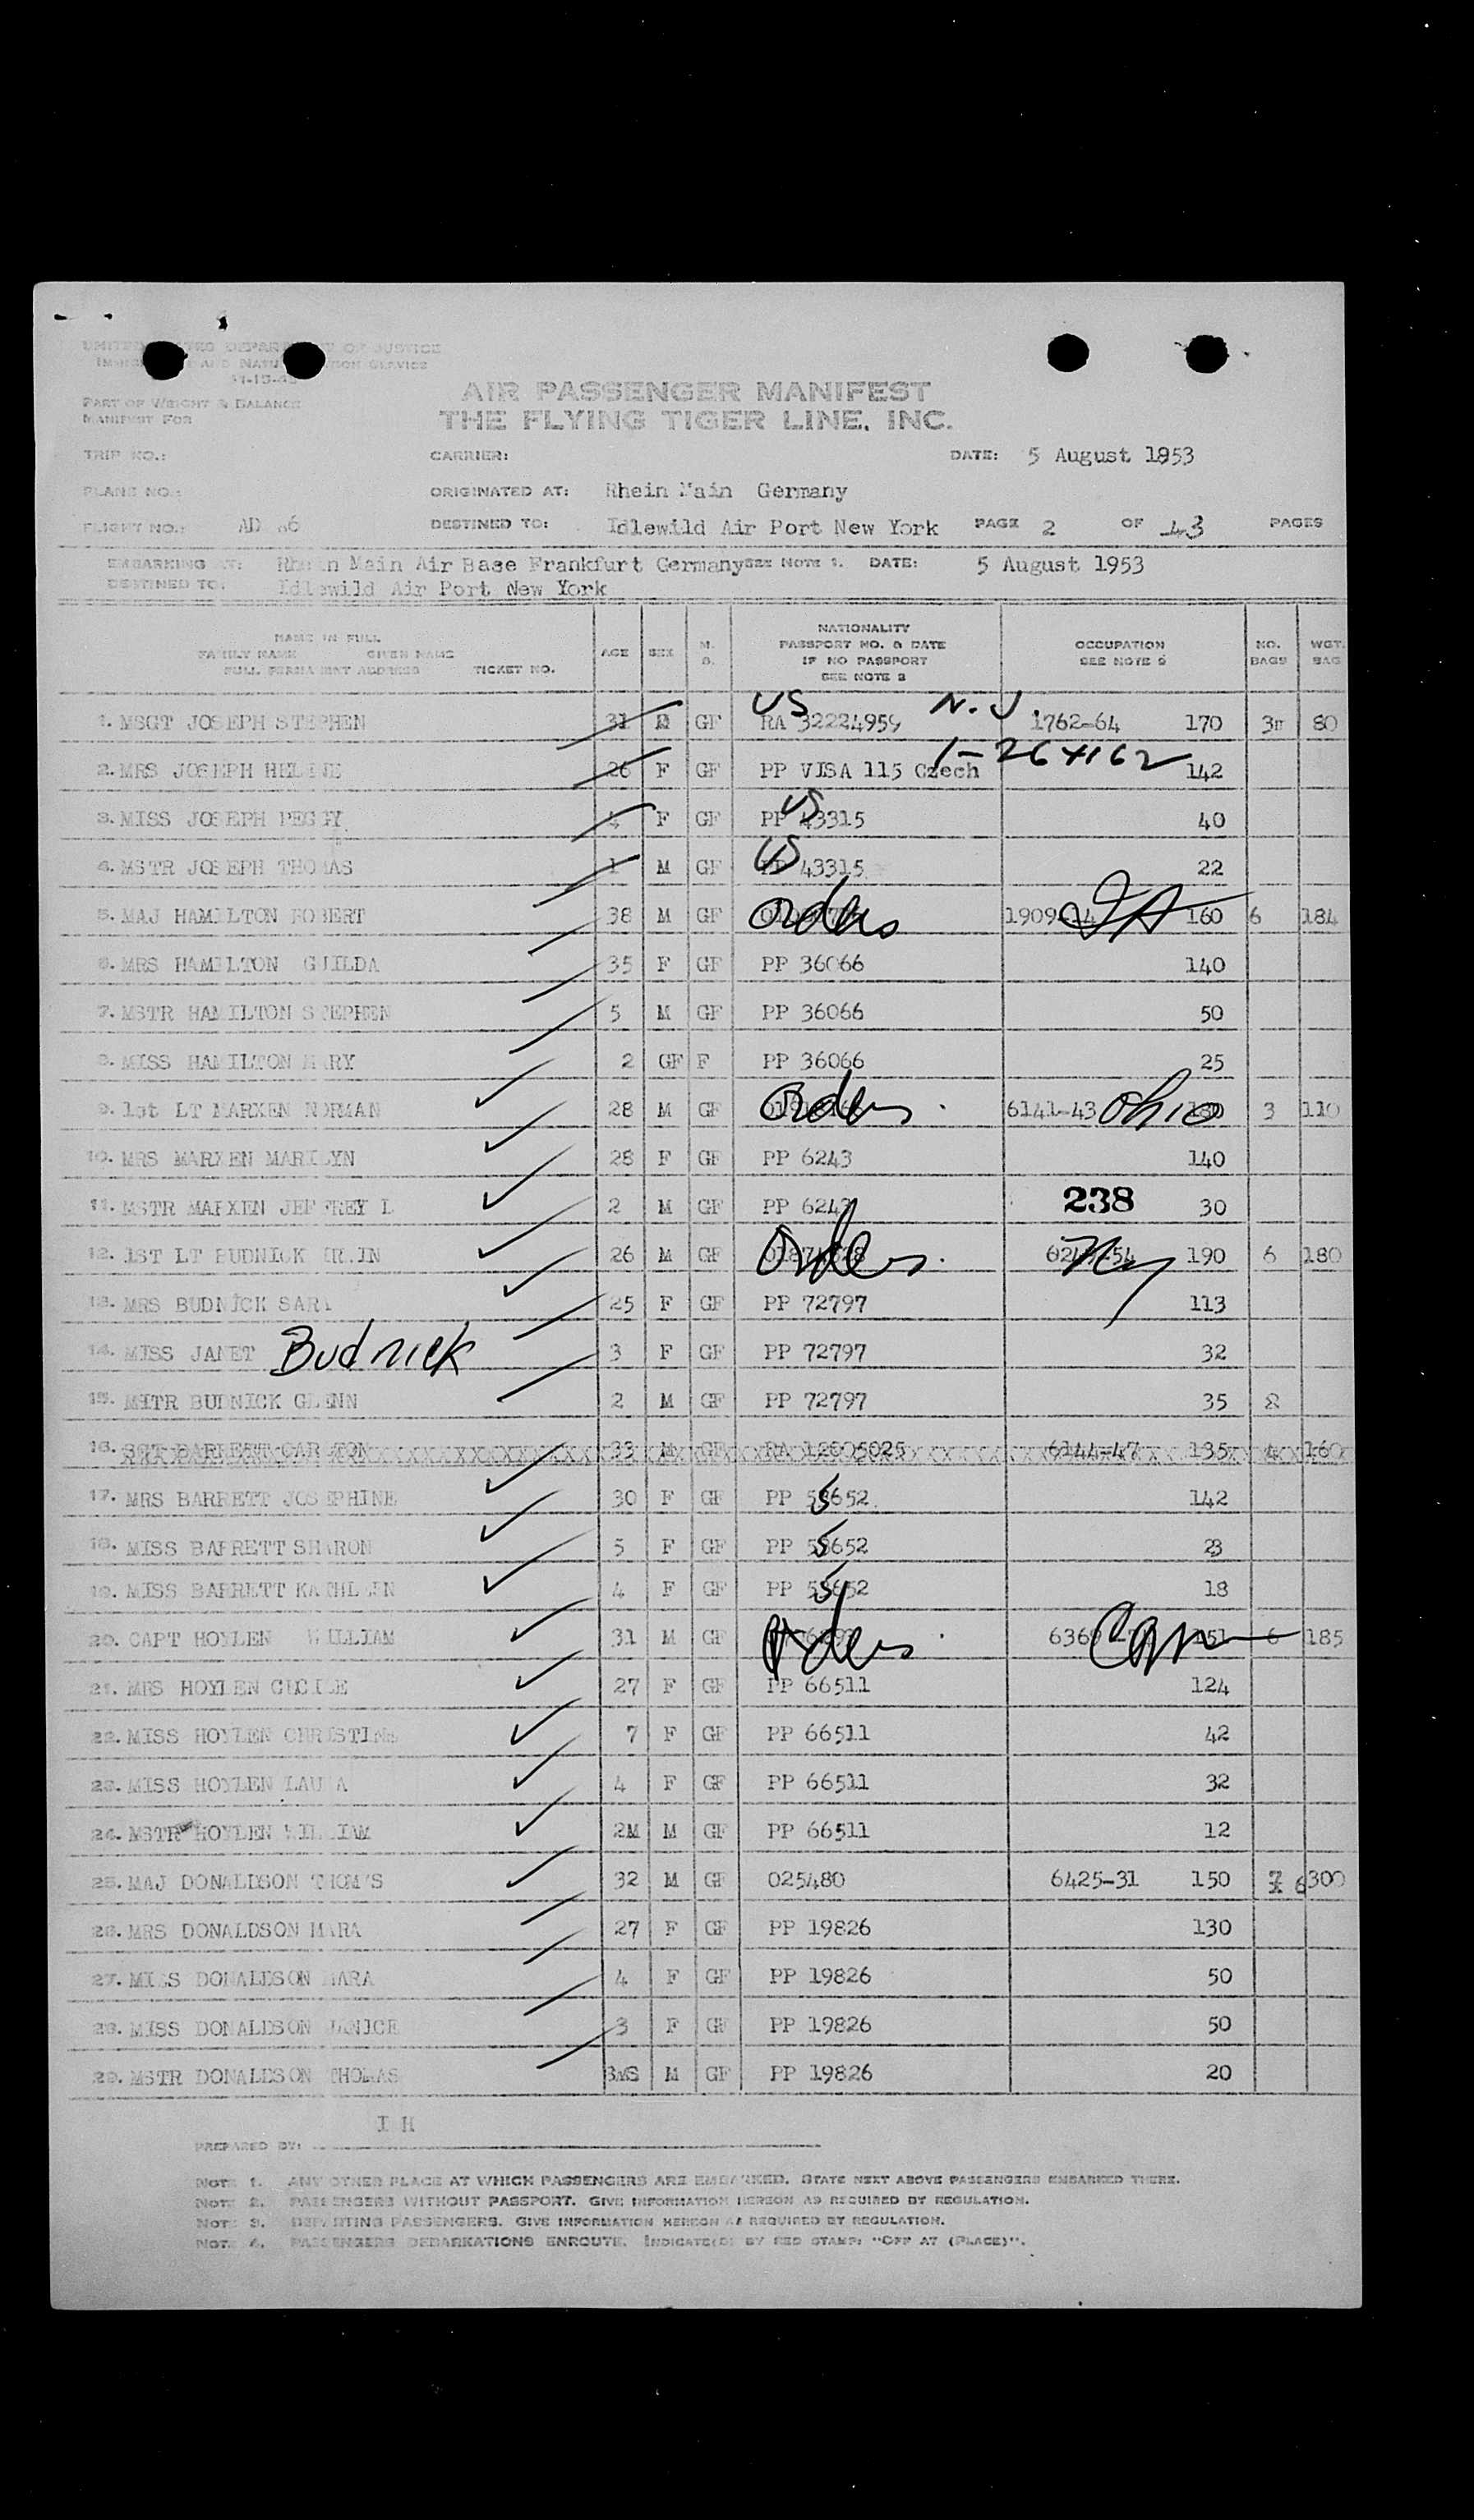 UNITED STATES DEPARTMENT OF JUSTICE
IMMIGRATION AND NATURALIZATION SERVICE
11-15-45
PART OF WEIGHT & BALANCE
MANIFEST FOR
AIR PASSENGER MANIFEST
THE FLYING TIGER LINE, INC.
TRIP NO.: CARRIER: DATE: 5 August 1953
PLANE NO.: ORIGINATED AT: Rhein Main Germany
FLIGHT NO.: AD DESTINED TO: Idlewild Air Port New York PAGE 2 OF 43 PAGES
EMBARKING AT: Rhein Main Air Base Frankfurt Germany SEE NOTE 1. DATE: 5 August 1953
DESTINED TO: Idlewild Air Port New York
NAME IN FULL
FAMILY NAME GIVEN NAME
FULL PERMANENT ADDRESS TICKET NO.
AGE SEX M. S.
NATIONALITY
PASSPORT NO. & DATE
IF NO PASSPORT
SEE NOTE 2
OCCUPATION
SEE NOTE 2
NO. BAGS
WGT. BAG
US N.J.
1. MSGT JOSEPH STEPHEN 31 M GF RA 32224959 1762-64 170 3 80
1-264162
2. MRS JOSEPH HELENE 26 F GF PP VISA 115 Czech 142
US
3. MISS JOSEPH PEGGY 4 F GF PP 43315 40
US
4. MSTR JOSEPH THOMAS 1 M GF PP 43315 22
5. MAJ HAMILTON ROBERT 38 M GF Orders 1909 160 6 184
6. MRS HAMILTON GUILDA 35 F GF PP 36066 140
7. MSTR HAMILTON STEPHEN 5 M GF PP 36066 50
8. MISS HAMILTON MARY 2 GF F PP 36066 25
9. 1st LT MARXEN NORMAN 28 M GF Orders 6141-43 Ohio 180 3 110
10. MRS MARXEN MARILYN 28 F GF PP 6243 140
11. MSTR MARXEN JEFFREY L 2 M GF PP 6243 238 30
12. 1ST LT BUDNICK 26 M GF Orders Ny 190 6 180
13. MRS BUDNICK SARI 25 F GF PP 72797 113
14. MISS JANET Budnick 3 F GF PP 72797 32
15. MSTR BUDNICK GLENN 2 M GF PP 72797 35 2
16. SGT BARRETT CARLTON 33 M GF RA 12005025 6144-47 135 4 160
17. MRS BARRETT JOSEPHINE 30 F GF PP 55652 142
18. MISS BARRETT SHARON 5 F GF PP 55652 23
19. MISS BARRETT KATHLEEN 4 F GF PP 55652 18
20. CAPT HOYLEN WILLIAM 31 M GF Orders 151 6 185
21. MRS HOYLEN CECILE 27 F GF PP 66511 124
22. MISS HOYLEN CHRISTINE 7 F GF PP 66511 42
23. MISS HOYLEN LAURA 4 F GF PP 66511 32
24. MSTR HOYLEN WILLIAM 2M M GF PP 66511 12
25. MAJ DONALDSON THOMAS 32 M GF 025480 6425-31 150 6 300
26. MRS DONALDSON MARA 27 F GF PP 19826 130
27. MISS DONALDSON MARA 4 F GF PP 19826 50
28. MISS DONALDSON JANICE 3 F GF PP 19826 50
29. MSTR DONALDSON THOMAS 3MS M GF PP 19826 20
PREPARED BY:
NOTE 1. ANY OTHER PLACE AT WHICH PASSENGERS ARE EMBARKED. STATE NEXT ABOVE PASSENGERS EMBARKED THERE.
NOTE 2. PASSENGERS WITHOUT PASSPORT. GIVE INFORMATION HEREON AS REQUIRED BY REGULATION.
NOTE 3. DEPARTING PASSENGERS. GIVE INFORMATION HEREON AS REQUIRED BY REGULATION.
NOTE 4. PASSENGERS DEBARKATIONS ENROUTE. INDICATE(D) BY RED STAMP: "OFF AT (PLACE)".